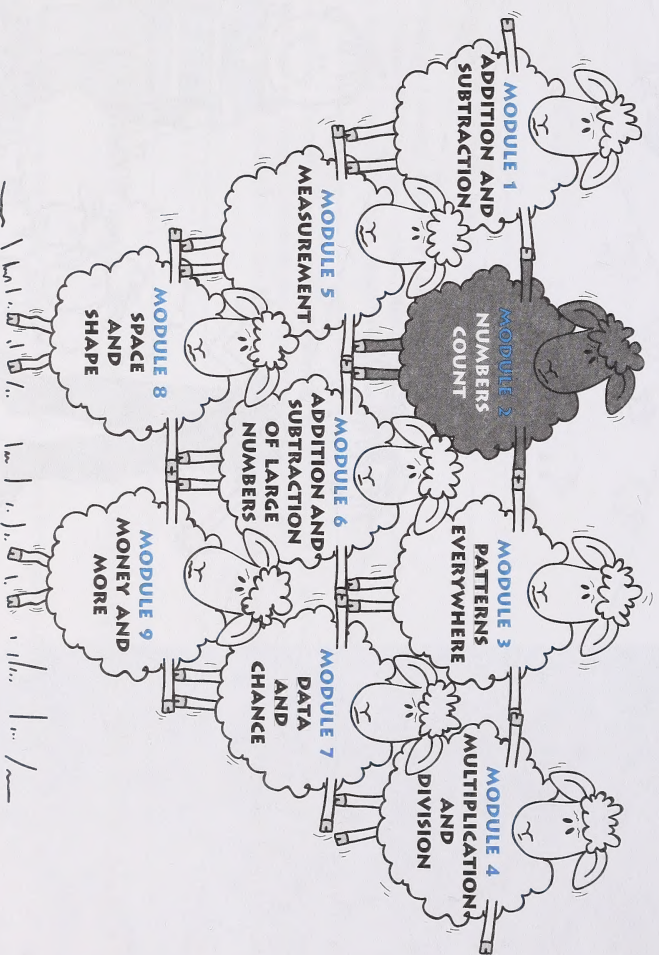 MODULE 1
ADDITION AND
SUBTRACTION
MODULE 2
NUMBERS
COUNT
MODULE 3
PATTERNS
EVERYWHERE
MODULE 4
MULTIPLICATION
AND
DIVISION
MODULE 5
MEASUREMENT
MODULE 6
ADDITION AND
SUBTRACTION
OF LARGE
NUMBERS
MODULE 7
DATA
AND
CHANCE
MODULE 8
SPACE
AND
SHAPE
MODULE 9
MONEY AND
MORE